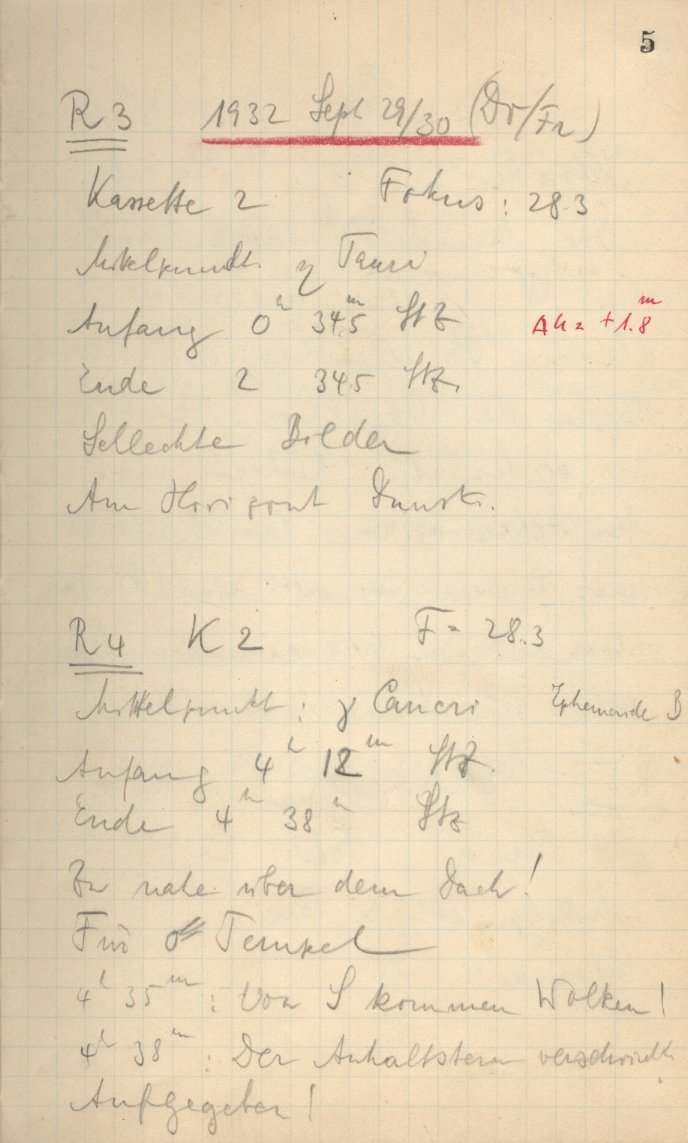 5
R 3 1932 Sept 29/30 (Do/Fr)
Kassette 2 Fokus: 28.3
Mittelpunkt η Tauri
Anfang 0h 34.5m StZ Δu = +1.8m
Ende 2 34.5 StZ.
Schlechte Bilder
Am Horizont Dunst.
R 4 K 2 F = 28.3
Mittelpunkt: γ Cancri Ephemeride B
Anfang 4h 12m StZ
Ende 4h 38m StZ
Zu nahe über dem Dach!
Für Tempel
4h 35m: Von S kommen Wolken!
4h 38m: Der Anhaltstern verschwindet
Aufgegeben!